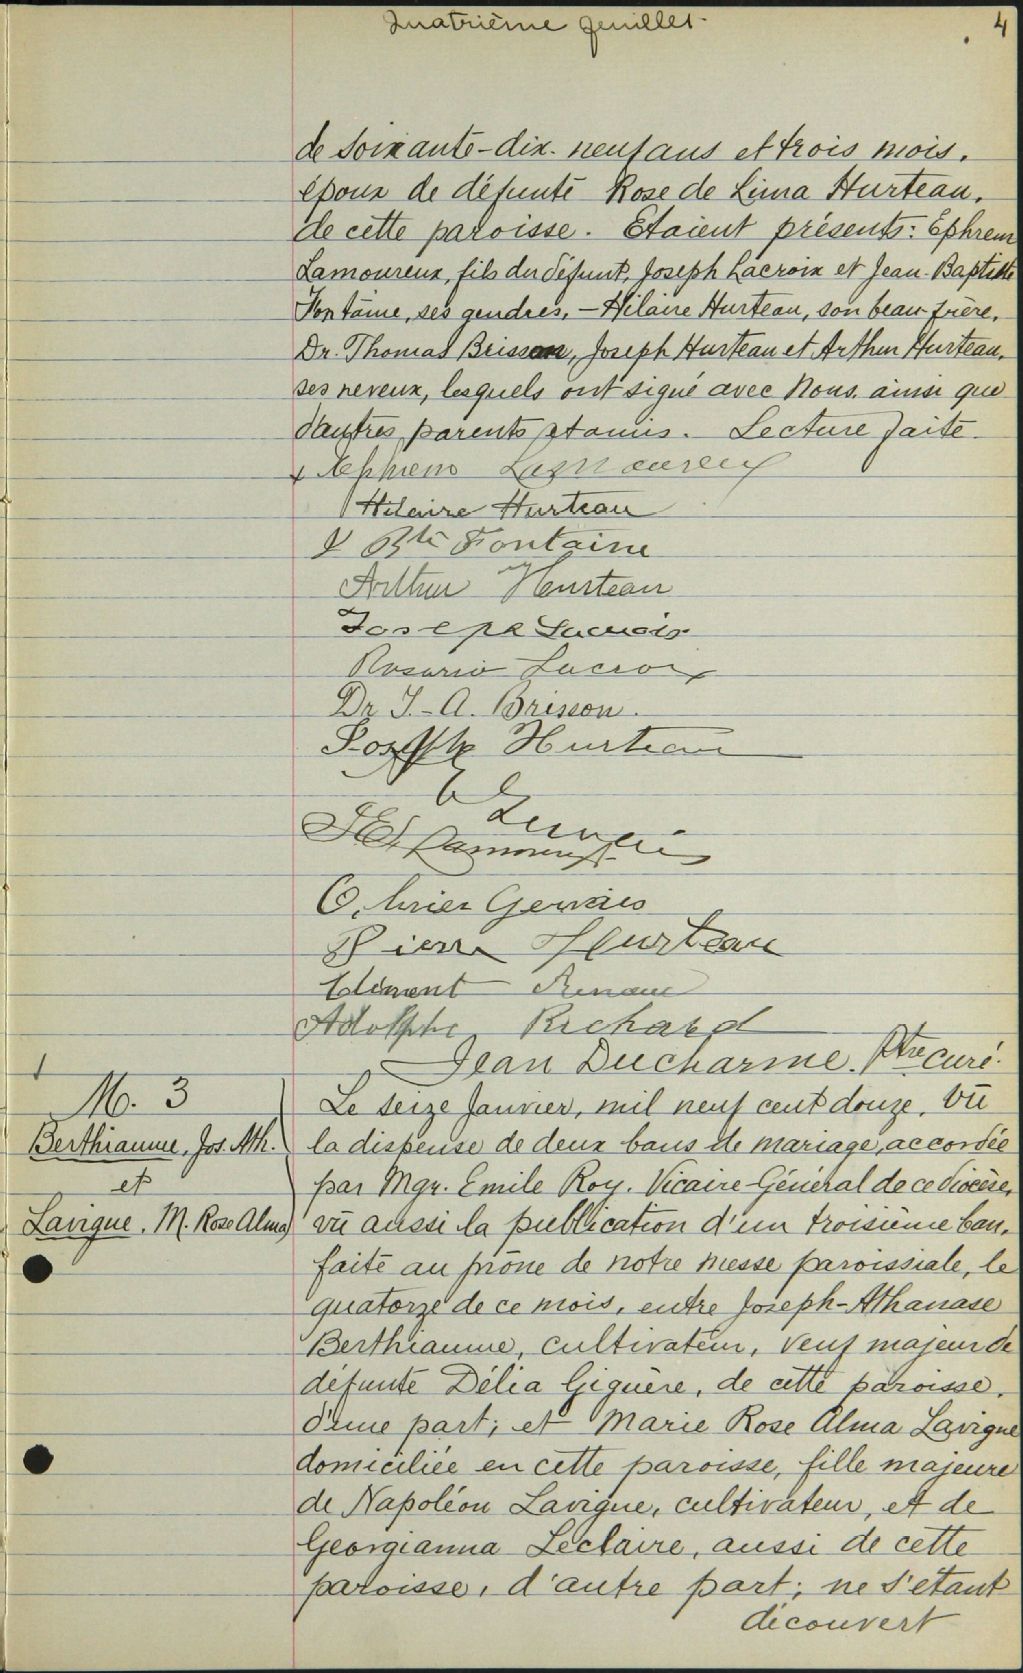 Quatrième feuillet.
4
de soixante-dix-neuf ans et trois mois,
époux de défunte Rose de Lima Hurteau,
de cette paroisse. Etaient présents: Ephrem
Lamoureux, fils du défunt, Joseph Lacroix et Jean-Baptiste
Fontaine, ses gendres, - Hilaire Hurteau, son beau-frère,
Dr. Thomas Brisson, Joseph Hurteau et Arthur Hurteau,
ses neveux, lesquels ont signé avec Nous, ainsi que
d'autres parents et amis. Lecture faite.
x Ephrem Lamoureux
Hilaire Hurteau
J Bte Fontaine
Arthur Hurteau
Joseph Lacroix
Rosario Lacroix
Dr T.-A. Brisson.
Joseph Hurteau
J E Lamoureux
Olivier Gervais
Pierre Hurteau
Clément
Adolphe Richard
Jean Ducharme. Ptre curé.
M. 3
Berthiaume, Jos. Ath.
et
Lavigne, M. Rose Alma
Le seize Janvier, mil neuf cent douze, vû
la dispense de deux bans de mariage, accordée
par Mgr. Emile Roy, Vicaire-Général de ce diocèse,
vû aussi la publication d'un troisième ban,
faite au prône de notre messe paroissiale, le
quatorze de ce mois, entre Joseph-Athanase
Berthiaume, cultivateur, veuf majeur de
défunte Délia Giguère, de cette paroisse,
d'une part; et Marie Rose Alma Lavigne
domiciliée en cette paroisse, fille majeure
de Napoléon Lavigne, cultivateur, et de
Georgianna Leclaire, aussi de cette
paroisse, d'autre part; ne s'étant
découvert